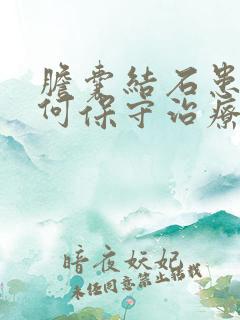 膽囊結石患
何保守治療
暗夜妖妃
未經同意禁止轉載